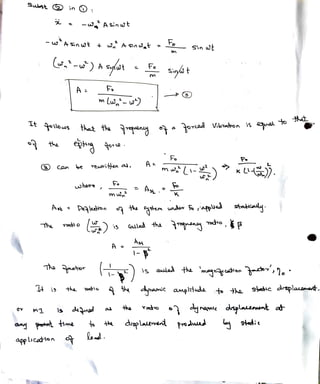 Subst ② in ① :
ẍ = -ω² A sin ωt
-ω² A sin ωt + ωn² A sin ωt = F₀/m sin ωt
(ωn² - ω²) A sin ωt = F₀/m sin ωt
A = F₀ / m(ωn² - ω²) → ③
It follows that the frequency of a forced vibration is equal to that
of the exiting force.
③ can be rewritten as, A = F₀ / mωn²(1 - ω²/ωn²) ⇒ F₀ / K(1-(ω/ωn)²).
where, F₀/mωn² = Ast = F₀/K
Ast = Deflection of the system under F₀, applied statically.
The ratio (ω/ωn) is called the frequency ratio, β
A = Ast / 1-β²
The factor (1/1-β²) is called the 'magnification factor',
It is the ratio of the dynamic amplitude to the static displacement.
or MF is defined as the ratio of dynamic displacement at
any time to the displacement produced by static
application of load.